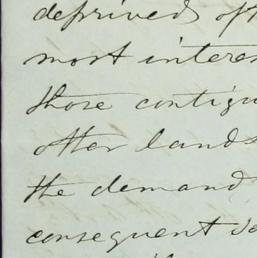 deprived of
most interes
those contigu
other lands
the demand
consequent